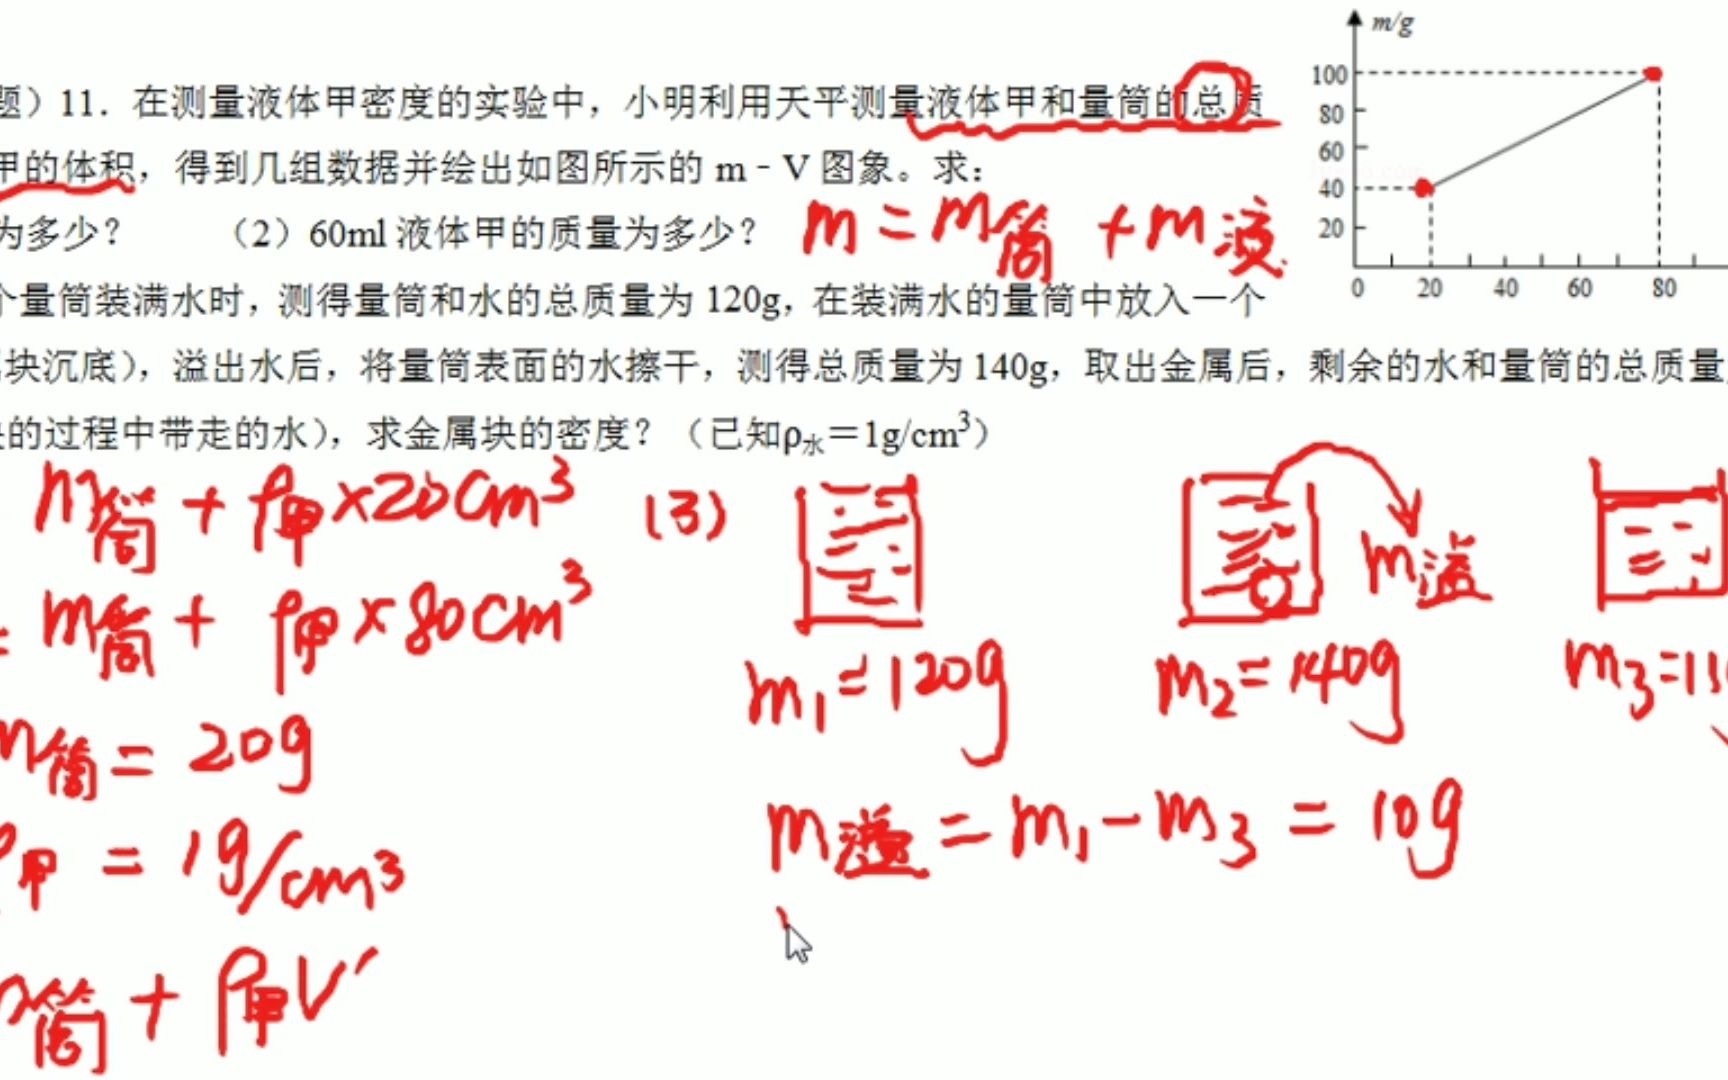 题）11．在测量液体甲密度的实验中，小明利用天平测量液体甲和量筒的总质
甲的体积，得到几组数据并绘出如图所示的 m﹣V 图象。求：
为多少？ （2）60ml 液体甲的质量为多少？
m = m筒 + m液
个量筒装满水时，测得量筒和水的总质量为 120g，在装满水的量筒中放入一个
块沉底），溢出水后，将量筒表面的水擦干，测得总质量为 140g，取出金属后，剩余的水和量筒的总质量
的过程中带走的水），求金属块的密度？（已知ρ水＝1g/cm³）
m/g
100
80
60
40
20
0 20 40 60 80
m筒 + ρ甲×20cm³
= m筒 + ρ甲×80cm³
m筒 = 20g
ρ甲 = 1g/cm³
m筒 + ρ甲V′
(3)
m溢
m₁=120g m₂=140g m₃=11
m溢 = m₁-m₃ = 10g